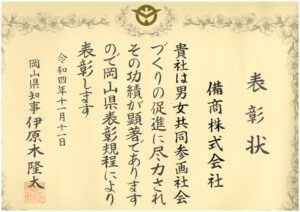 表彰状
備商株式会社
貴社は男女共同参画社会
づくりの促進に尽力され
その功績が顕著であります
ので岡山県表彰規程により
表彰します
令和四年十一月十一日
岡山県知事 伊原木隆太